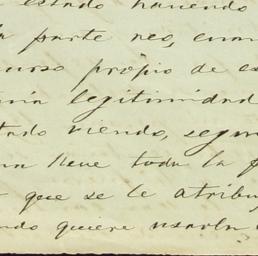 estado haciendo
la parte neo, cuan
curso própio de es
legitimidad
tado viendo, segun
una lleve toda la f
que se le atribu
ndo quiere usarla